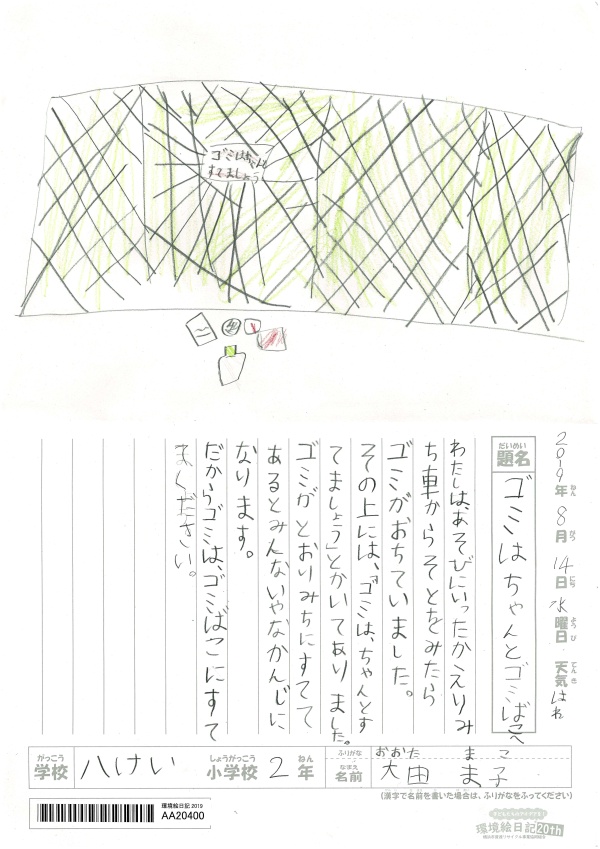 ゴミはちゃんと
すてましょう
2019年ねん 8月がつ 14日にち 水曜日ようび 天気てんき はれ
だいめい
題名
ゴミはちゃんとゴミばこへ
わたしは、あそびにいったかえりみ
ち車からそとをみたら
ゴミがおちていました。
その上には、「ゴミは、ちゃんとす
てましょう」とかいてありました。
ゴミがとおりみちにすてて
あるとみんないやなかんじに
なります。
だからゴミは、ゴミばこにすて
てください。
がっこう
学校
八けい
しょうがっこう
小学校
2
ねん
年
ふりがな
おおた ま こ
なまえ
名前
大田 ま子
(漢字で名前を書いた場合は、ふりがなをふってください)
環境絵日記 2019
AA20400
環境絵日記20th